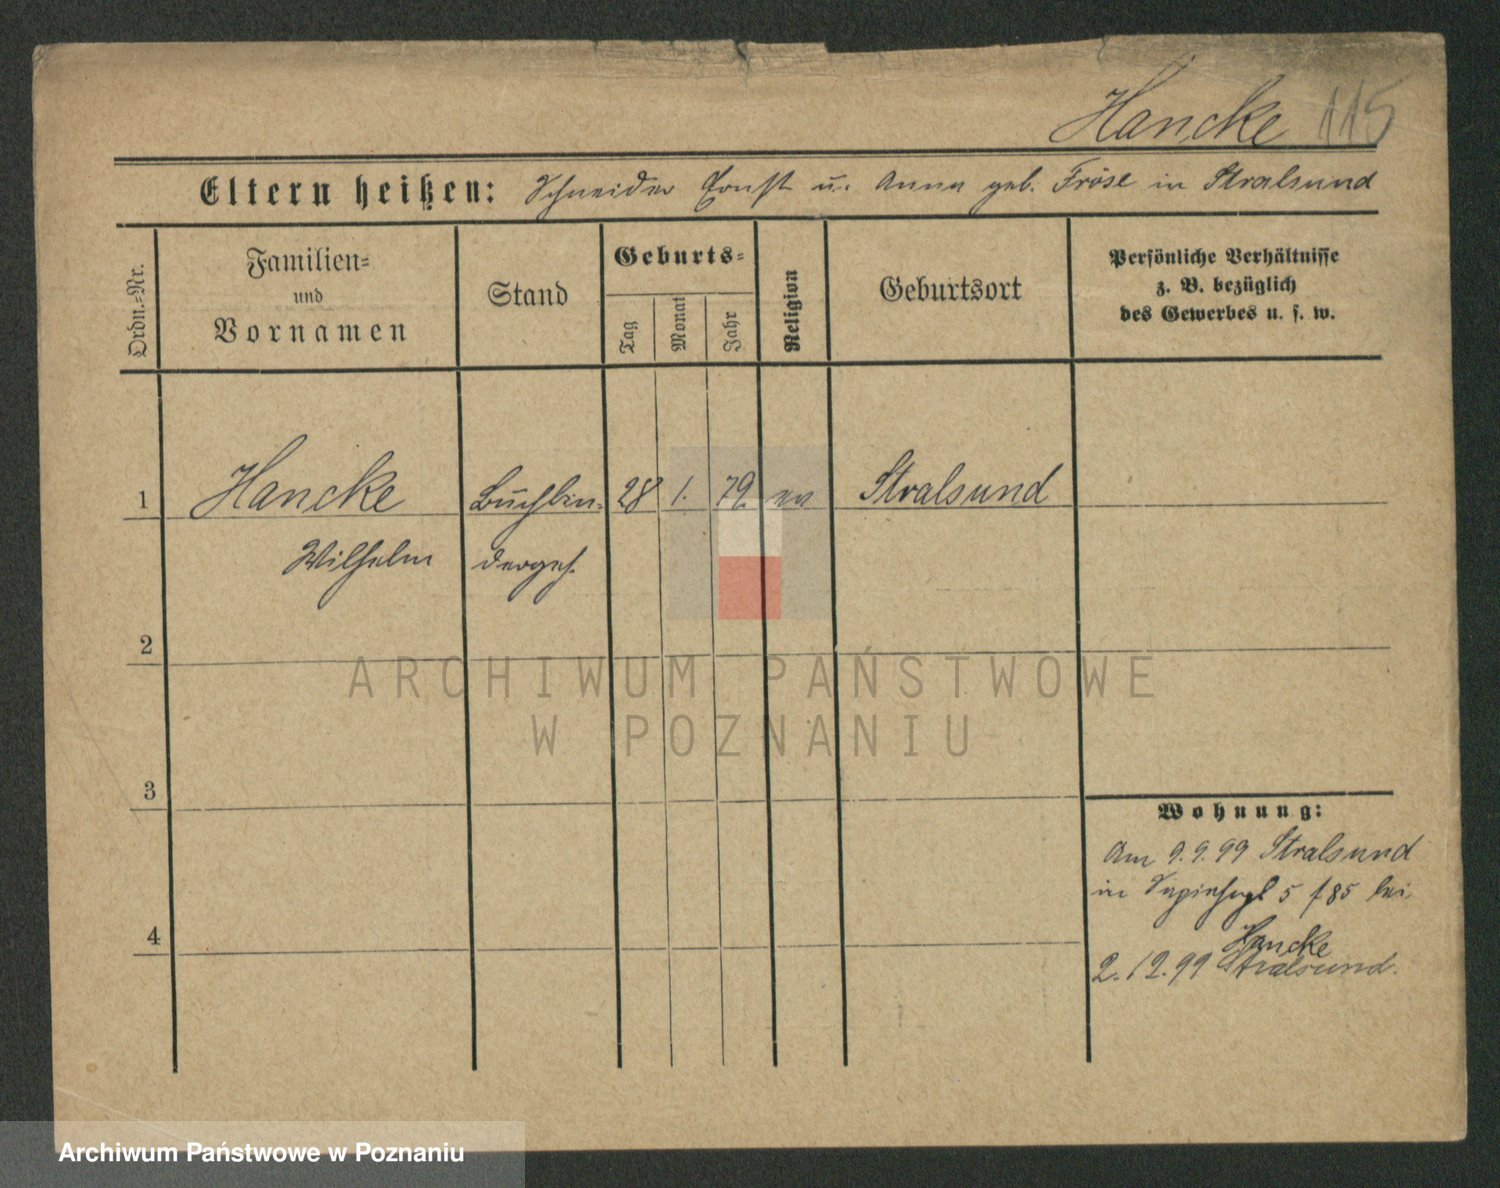 Hancke 115
Eltern heißen: Schneider Ernst u. Anna geb. Fröse in Stralsund
Ordn.=Nr.
Familien=
und
Vornamen
Stand
Geburts=
Tag
Monat
Jahr
Religion
Geburtsort
Persönliche Verhältnisse
z. B. bezüglich
des Gewerbes u. s. w.
1 Hancke Buchbin= 28 1. 79 ev Stralsund
Wilhelm dergeh.
2
3
4
Wohnung:
Am 9.9.99 Stralsund
in 5 bei
Hancke
2.12.99 Stralsund.
ARCHIWUM PAŃSTWOWE
W POZNANIU
Archiwum Państwowe w Poznaniu